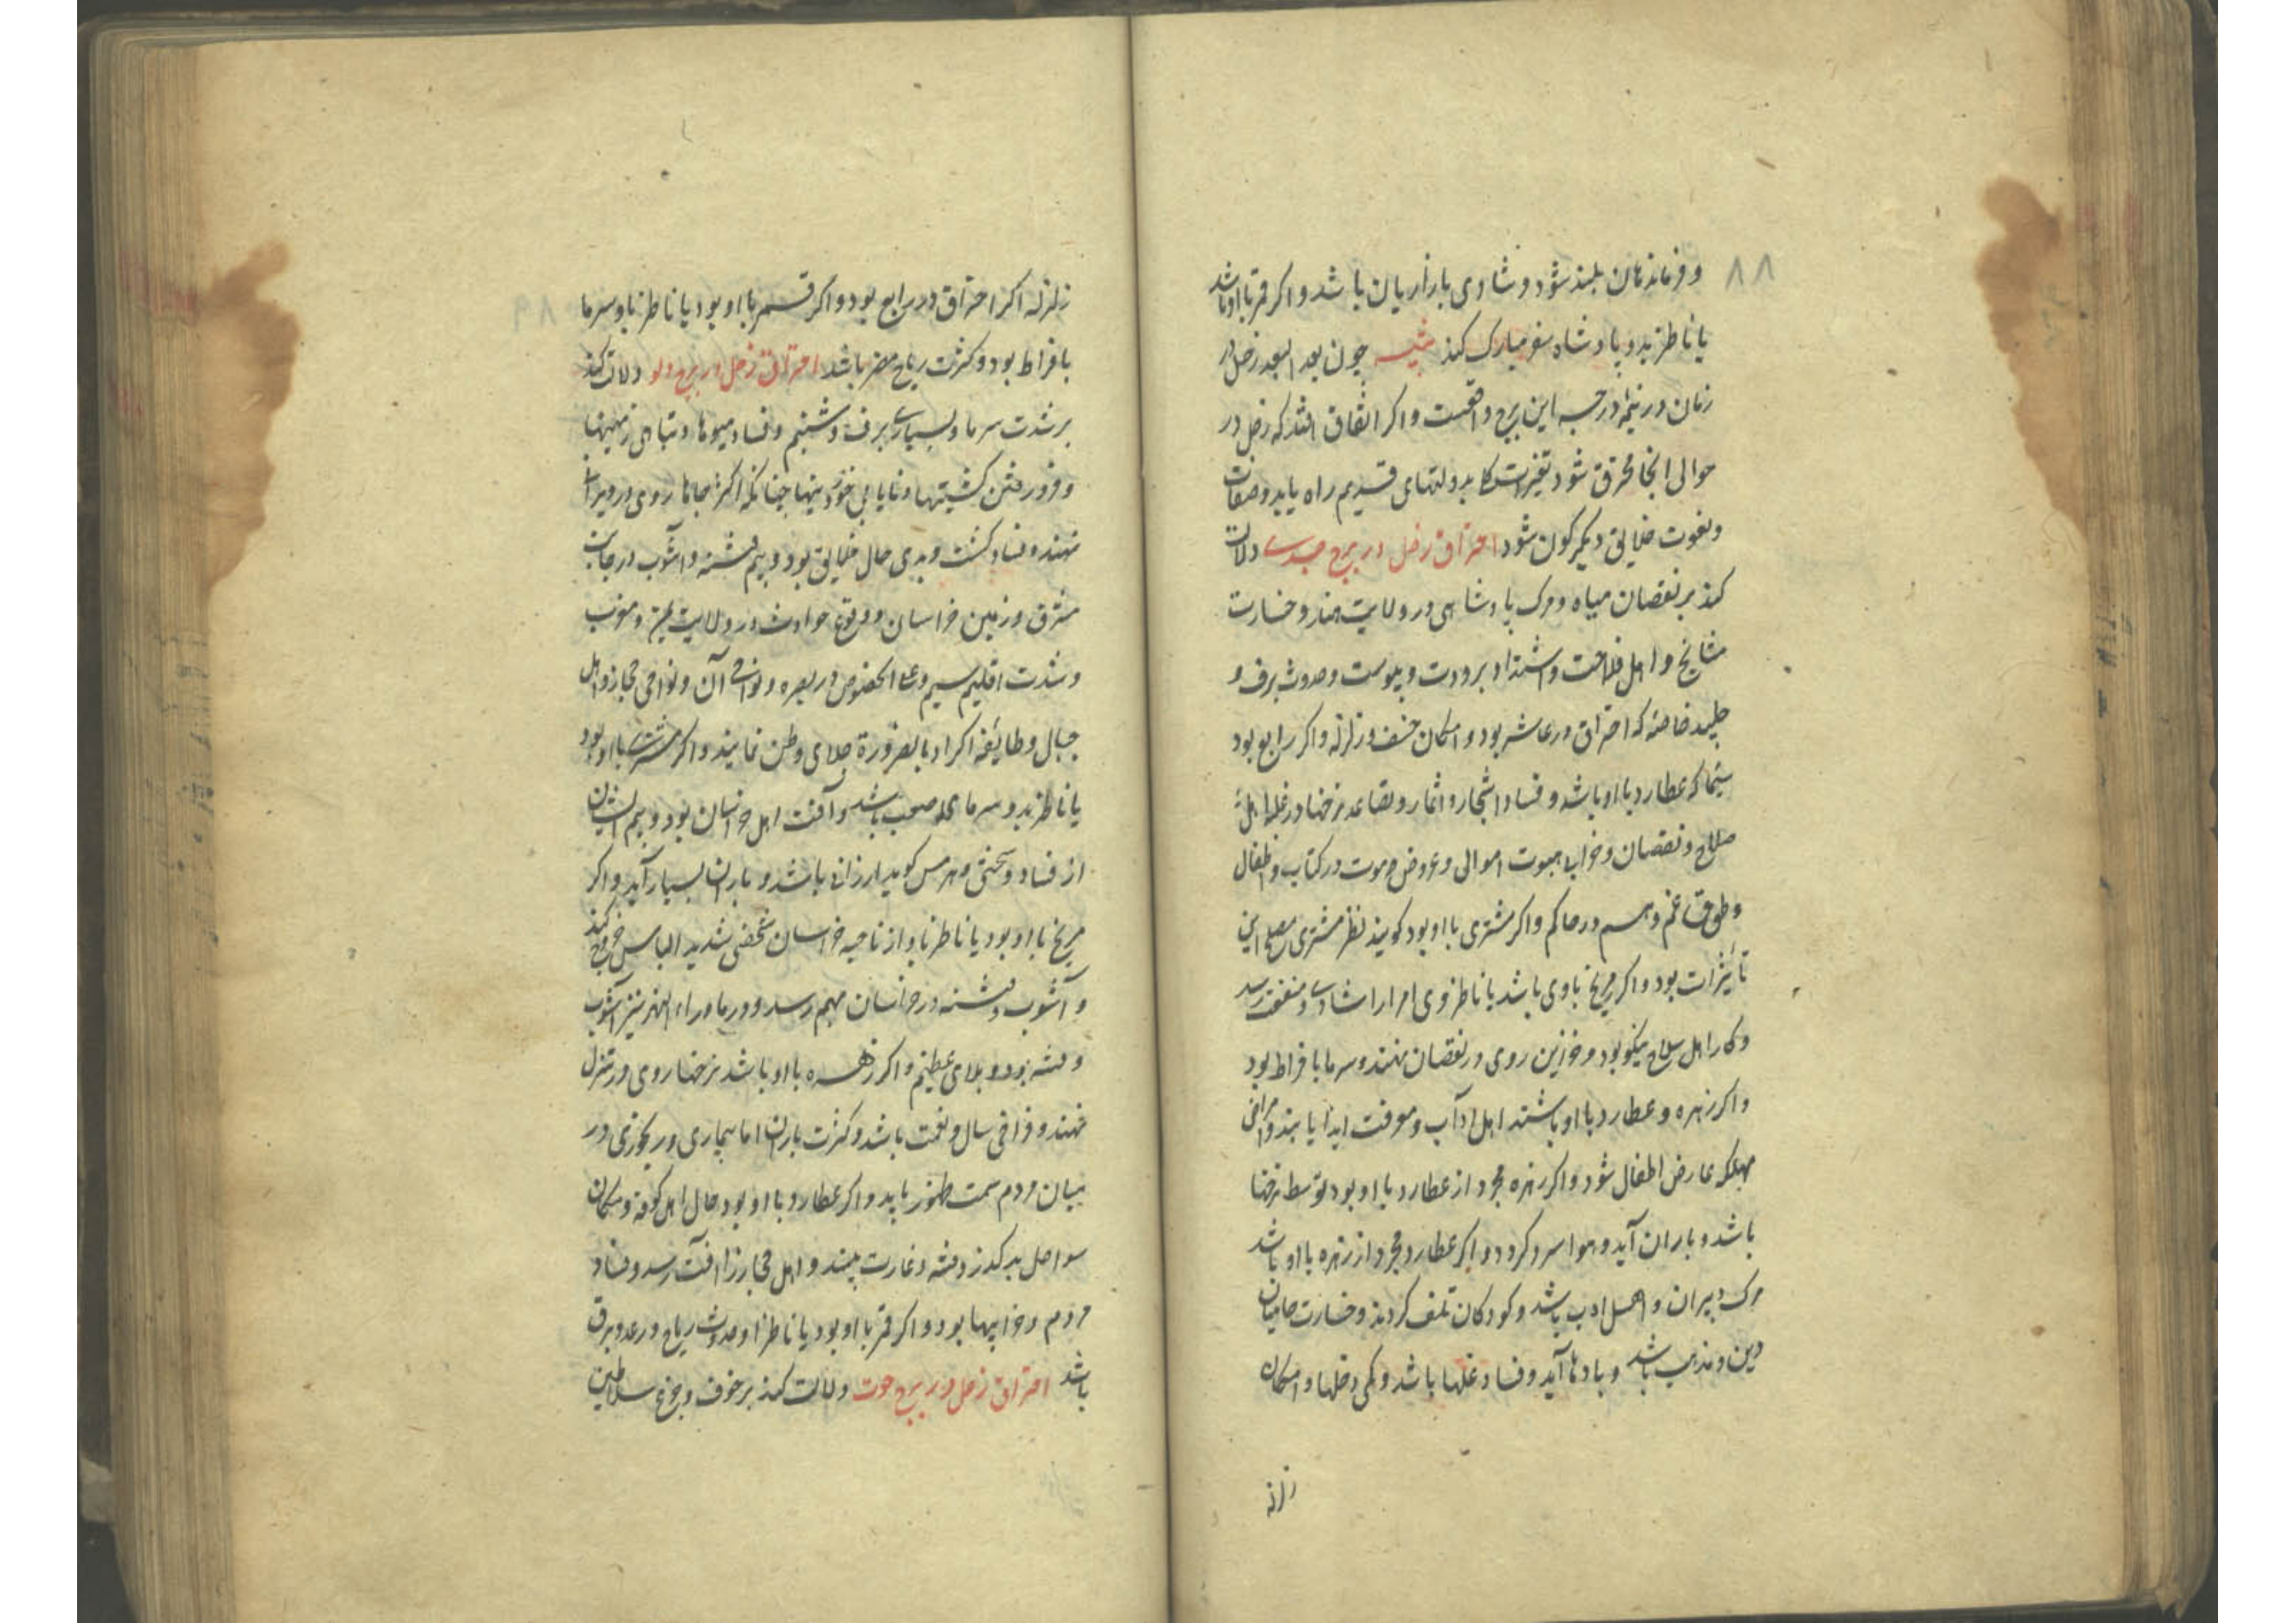 ۸۸
و فرماندهان بلند شود و شادی بازاریان باشد و اکر قمر با او باشد
یا ناظر بدو پادشاه سفر مبارک کند تنبیه چون بعد ابعد زحل در
زمان در نیمه درجه این برج واقعست و اکر اتفاق افتد که زحل در
حوالی انجا محترق شود تغیرات بدولتهای قدیم راه یابد وصفات
و نعوت خلایق دیکرکون شود احتراق زحل در برج جدی دلالت
کند بر نقصان میاه و مرک پادشاهی در ولایت هند و خسارت
مشایخ و اهل فلاحت و اشتداد برودت و یبوست و حدوث برف و
جلید خاصه که احتراق در عاشر بود و امکان خسف و زلزله و اکر رابع بود
سیما که عطارد با او باشد و فساد اشجار و اثمار و تقاعد نرخها در غله اهل
صلاح و نقصان و خرابی بیوت اموالی و عروض موت در کتاب و اطفال
و طوق غم و هم در حاکم و اکر مشتری با او بود کویند نظر مشتری مصلح این
تأثیرات بود و اکر مریخ باوی باشد یا ناظر وی امرا را شادی و منفعت رسد
و کار اهل سلاح نیکو بود و خزاین روی در نقصان نهند و سرما با فراط بود
و اکر زهره و عطارد با او باشند اهل آداب و معرفت ایذا یابند و امراض
مهلکه عارض اطفال شود و اکر زهره مجرد از عطارد با او بود توسط نرخها
باشد و باران آید و هوا سرد کردد و اکر عطارد مجرد از زهره با او باشد
مرک دبیران و اهل ادب باشد و کودکان تلف کردند و خسارت حامیان
دین و مذهب باشد و بادها آید و فساد غلها باشد و کمی دخلها و امکان
زلزله
زلزله اکر احتراق در رابع بود و اکر قمر با او بود یا ناظر باو سرما
بافراط بود و کثرت ریاح مضر باشد احتراق زحل در برج دلو دلالت کند
بر شدت سرما و بسیاری برف و شبنم و فساد میوها و تباهی زمینها
و فرو رفتن کشتیها و نایابی خوردنیها چنانکه اکثر جاها روی در ویرانی
نهند و فساد کشت و بدی حال خلایق بود و بیم فتنه و آشوب در جانب
مشرق و زمین خراسان و وقوع حوادث در ولایت یمن و مغرب
و شدت اقلیم سیم و علی الخصوص در بصره و نواحی آن و نواحی حجاز و اهل
جبال و طایفه اکراد بالضرورة جلای وطن نمایند و اکر مشتری با او بود
یا ناظر بدو سرمای صعب باشد و آفت اهل خراسان بود و بیم ایشان
از فساد و سختی و هرمس کوید ارزانی باشد و باران بسیار آید و اکر
مریخ با او بود یا ناظر باو از ناحیه خراسان شخصی شدید الباس خروج کند
و آشوب و فتنه در خراسان بهم رسد و در ماوراء النهر نیز آشوب
و فتنه بود و بلای عظیم و اکر زهره با او باشد نرخها روی در تنزل
نهند و فراخی سال و نعمت باشد و کثرت باران اما بیماری و رنجوری در
میان مردم سمت ظهور یابد و اکر عطارد با او بود حال اهل کوفه و سکان
سواحل بد کذرد و فتنه و غارت بینند و اهل حجاز را آفت رسد و فساد
مردم و خرابیها بود و اکر قمر با او بود یا ناظر او حدوث ریاح و رعد و برق
باشد احتراق زحل در برج حوت دلالت کند بر خوف و جزع سلاطین